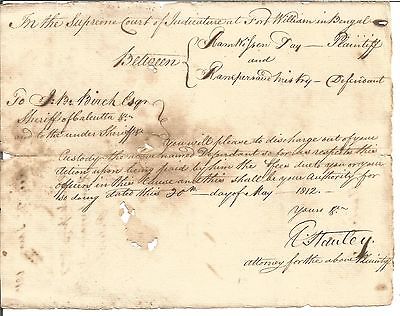 In the Supreme Court of Judicature at Fort William in Bengal
Between
Ramkissen Day — Plaintiff
and
Rampersaud mistry — Defendant
To J. B. Birch Esqr
Sheriff of Calcutta &ca
and to the under Sheriff &ca
You will please to discharge out of your
Custody the above named Defendant so far as respects this
action upon being paid by him the fees due to you or your
officers in this Cause and this shall be your authority for
so doing dated this 30th day of May 1812.
Yours &ca
Stanley
attorney for the above Plaintiff